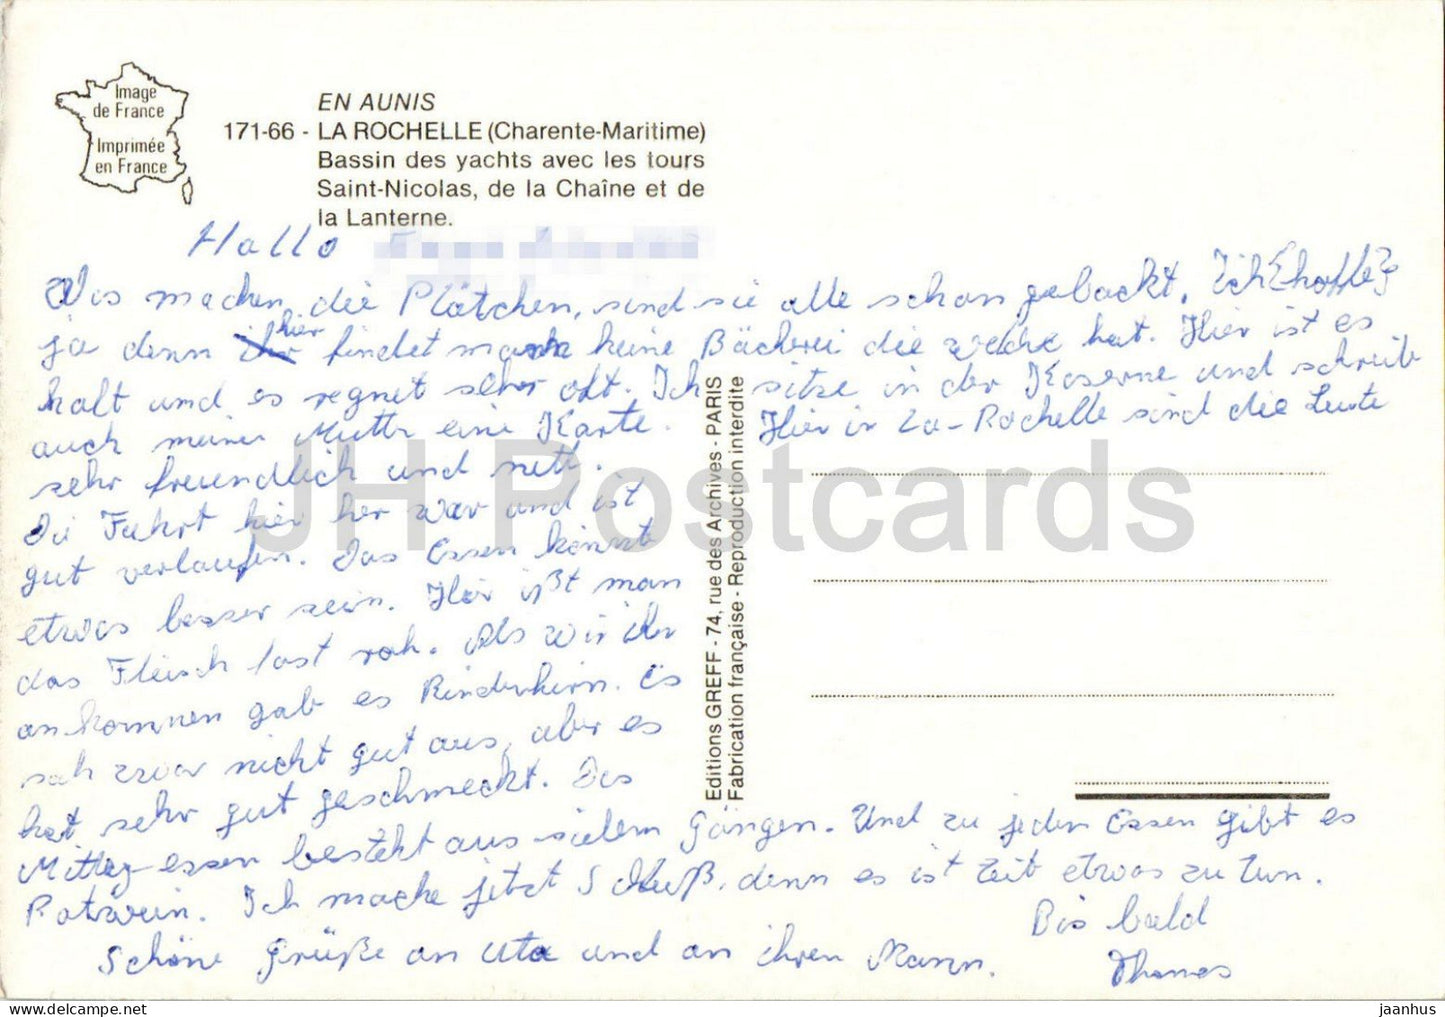 Image
de France
Imprimée
en France
EN AUNIS
171-66 - LA ROCHELLE (Charente-Maritime)
Bassin des yachts avec les tours
Saint-Nicolas, de la Chaîne et de
la Lanterne.
Hallo
Was machen die Plätchen, sind sie alle schon gebackt. Ich hoffe
ja denn hier findet man keine Bäckerei die welche hat. Hier ist es
kalt und es regnet sehr oft. Ich sitze in der Kaserne und schreib
auch meiner Mutter eine Karte. Hier in La-Rochelle sind die Leute
sehr freundlich und nett.
Die Fahrt hier her war und ist
gut verlaufen. Das Essen könnte
etwas besser sein. Hier ißt man
das Fleisch fast roh. Als wir hier
ankommen gab es Rinderhirn. Es
sah zwar nicht gut aus, aber es
hat sehr gut geschmeckt. Das
Mittagessen besteht aus vielen Gängen. Und zu jeden Essen gibt es
Rotwein. Ich mache jetzt Schluß, denn es ist Zeit etwas zu tun.
Bis bald
Schöne Grüße an Uta und an ihren Mann.
Thomas
Editions GREFF - 74, rue des Archives - PARIS
Fabrication française - Reproduction interdite
JH Postcards
jaanhus.com